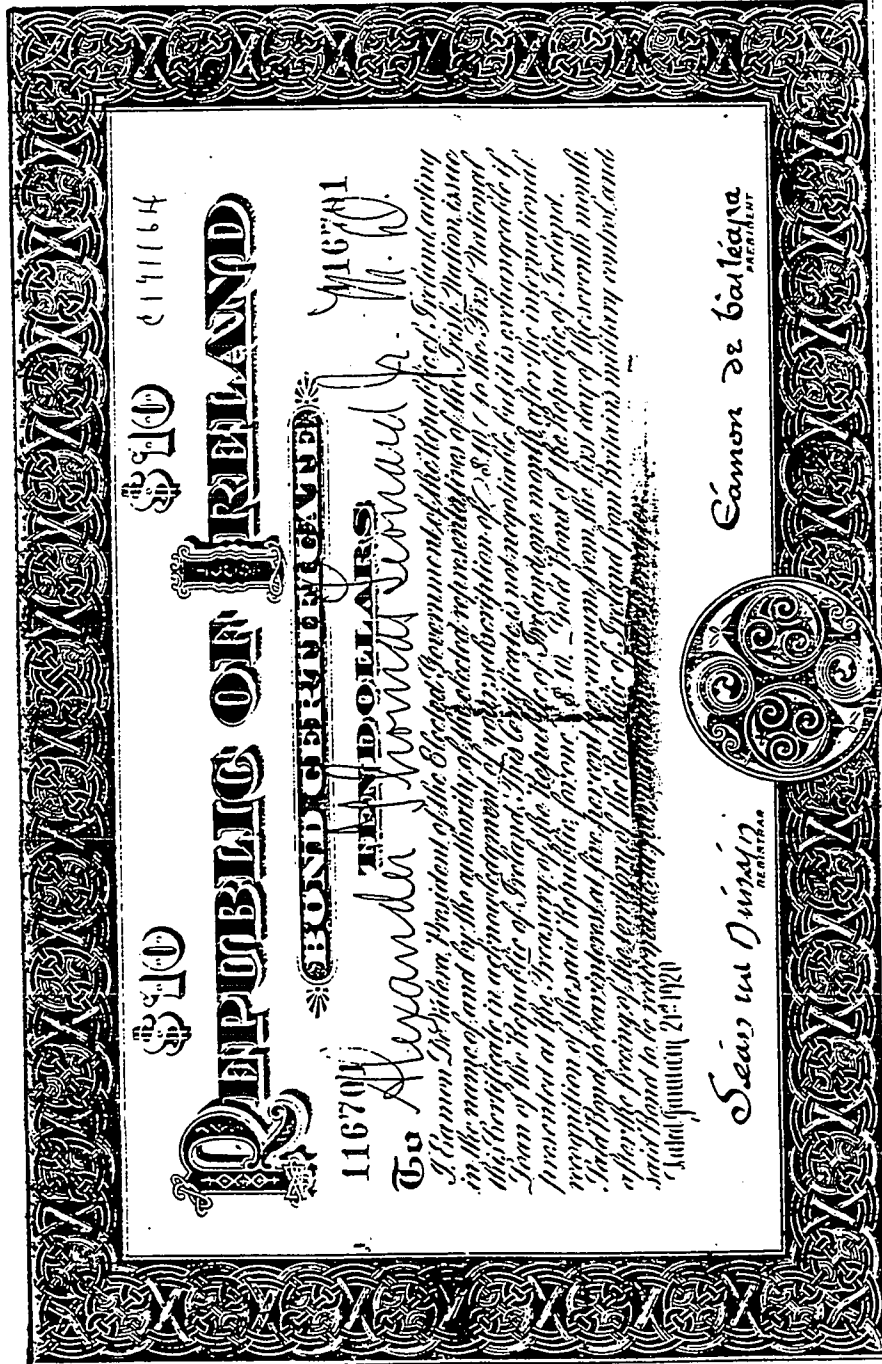 $10 $10
REPUBLIC OF IRELAND
BOND CERTIFICATE
116701 TEN DOLLARS 116701
To Alexander Thomas Leonard Jr. M.D.
I Eamon De Valera, President of the Elected Government of the Republic of Ireland acting
in the name of and by the authority of the elected representatives of the Irish Nation issue
this Certificate in acknowledgment of your subscription of $10 to the First National
Loan of the Republic of Ireland. This Certificate is not negotiable but it is exchangeable if
presented at the Treasury of the Republic of Ireland one month after the international
recognition of the said Republic for one $10. Gold Bond of the Republic of Ireland.
Said Bond to bear interest at five per cent per annum from the first day of the seventh month
after the freeing of the territory of the Republic of Ireland from Britain's military control and
said Bond to be redeemable at par within one year thereafter
Dated January 21st 1920
Éamon de Valéara
REGISTRAR PRESIDENT